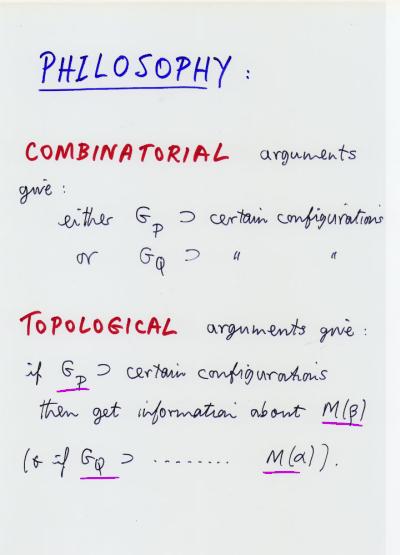 PHILOSOPHY :
COMBINATORIAL arguments
give :
either G_P ⊃ certain configurations
or G_Q ⊃ " "
TOPOLOGICAL arguments give :
if G_P ⊃ certain configurations
then get information about M(β)
(& if G_Q ⊃ ........ M(α)).